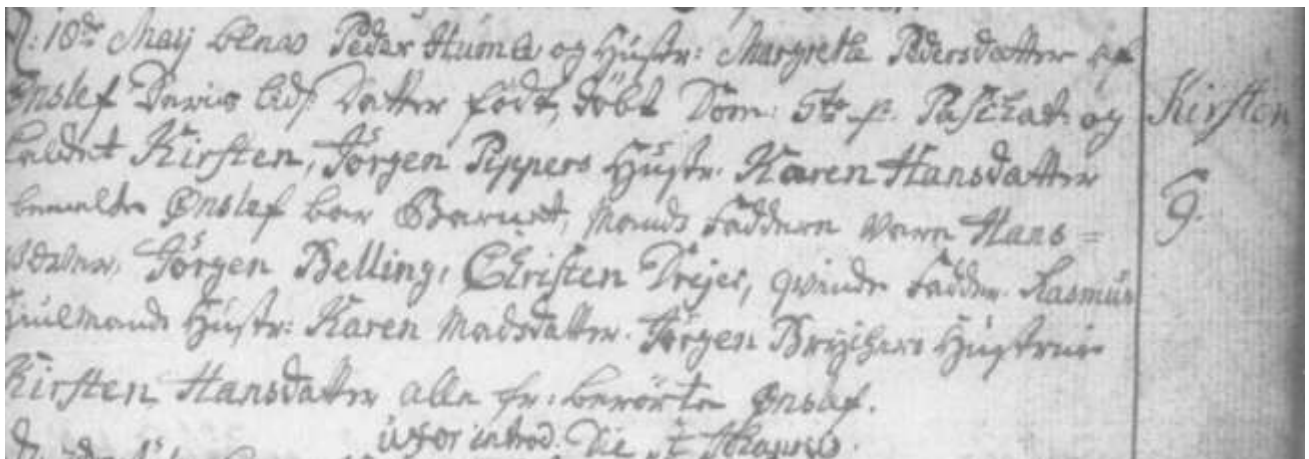 18de Maij blev Peder Humle og Hustr: Margrethe Pedersdatter af
Ønslef Datter födt, döbt Dom: 5te p. Paschat: og Kirsten
kaldet Kirsten, Jörgen Pippers Hustr. Karen Hansdatter
bemelte Ønslef bar Barnet, Mands Faddere vare Hans = 9.
Jörgen Belling, Christen Drejer, qvinde Fadder. Rasmus
Hiulmands Hustr: Karen Madsdatter. Jörgen Brÿgers Hustrue
Kirsten Hansdatter alle fr: berörte Ønslef.
uxor introd. Die